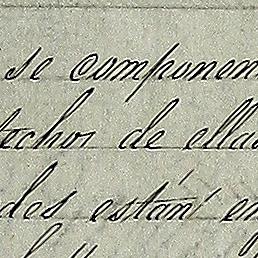 se componen
techos de ellas
des están en